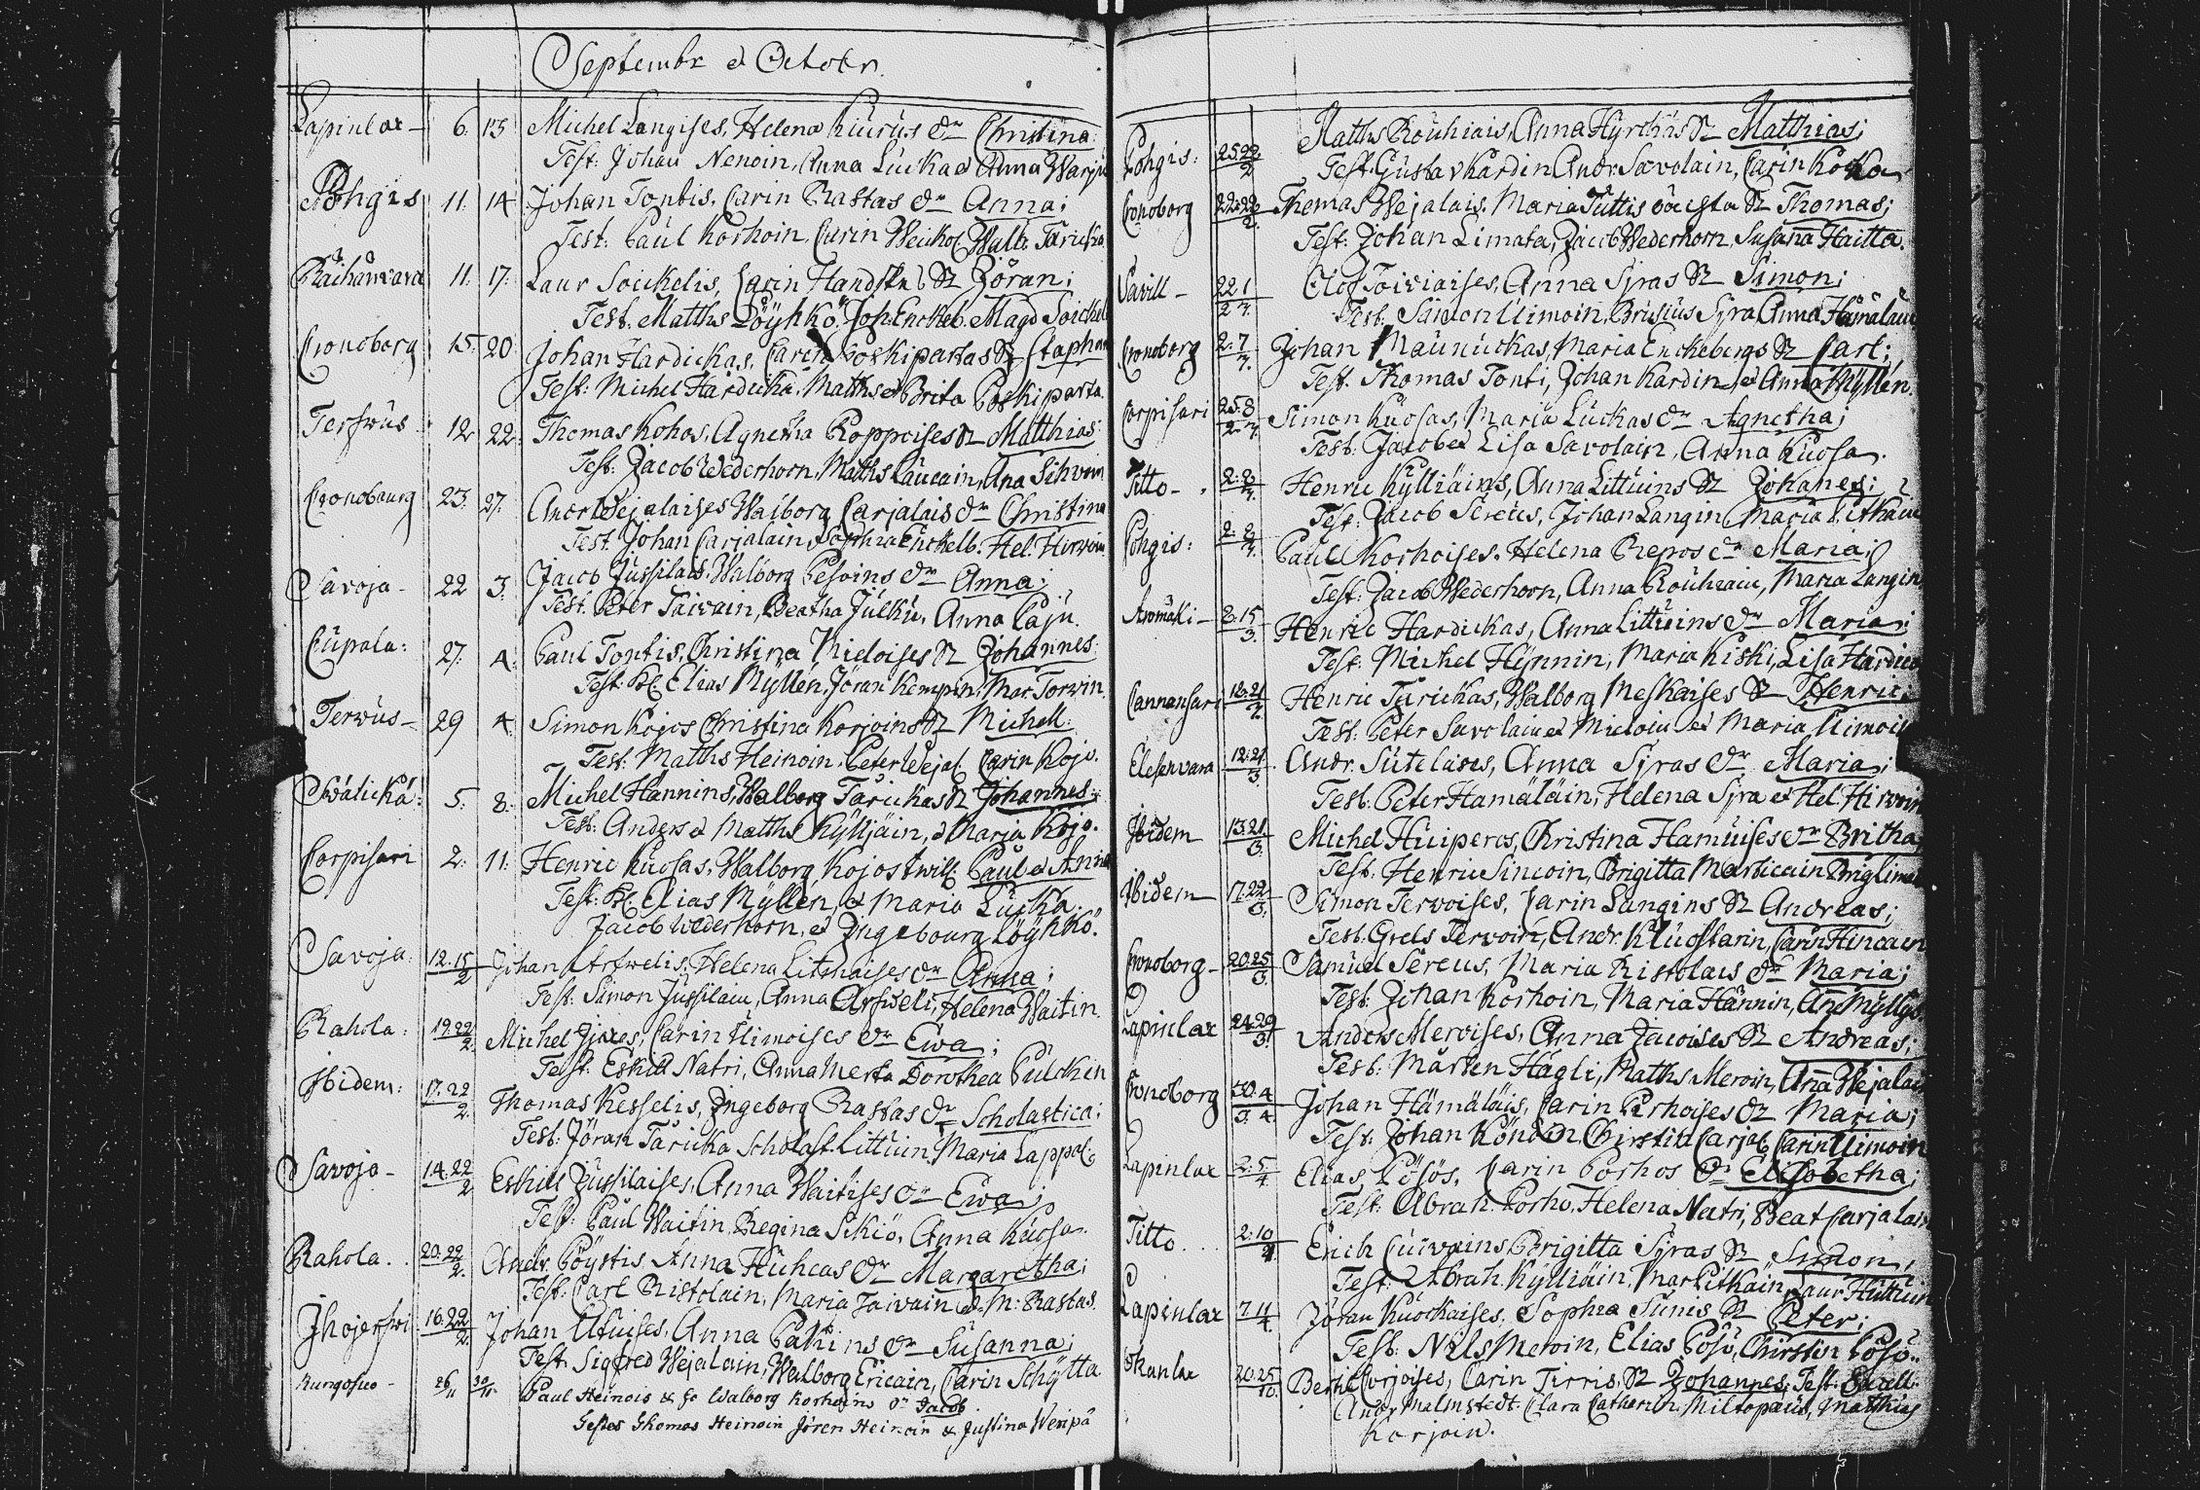 Septembr et Octobr.
Lapinlax 6. 13 Michel Langises, Helena Kiurus dr Christina:
Test: Johan Nenoin, Anna Lucka et Anna
Pohgis 11. 14 Johan Tontis, Carin Rastas dr Anna;
Test: Paul Korhoin, Carin Walb: Taricka
11. 17. Laur Soickelis, Carin S: Jöran;
Test: Matths Pöyhkö, Joh: Enckeb. Magd Soickel
Cronoborg 15. 20 Johan Hardickas, Carin Poskipartas S: Staphan
Test: Michel Hardicka, Matths et Brita Poskiparta.
Terfwus 12 22 Thomas Kohos, Agnetha Roppoises S: Matthias:
Test: Jacob Wederhorn, Matths Laucain, Ana Sihvoin
Cronobourg 23. 27. Andr Wejalaises Walborg Carjalais dr Christina
Test: Johan Carjalain, Sophia Enckelb. Hel: Hirvoin
Savoja 22 3. Jacob Jussilais, Walborg Pesoins dr Anna;
Test: Peter Taivain, Beatha Julku, Anna Paju.
Cupala: 27. 4. Paul Tontis, Christina Mieloises S: Johannes:
Test: Elias Myllén, Jöran Kempin, Mar Torvin.
Terwus 29 4. Simon Kojos Christina Korjoins S: Michell:
Test: Matths Heinoin, Peter Wejal. Carin Kojo.
5. 8. Michel Hännins, Walborg Tarickas S: Johannes:
Test: Anders et Matths Kylliäin, et Maria Kojo.
Corpisari 2. 11. Henric Kuosas, Walborg Kojos twill: Paul et Anna
Test: Elias Myllén, et Maria Lucka.
Jacob Wederhorn, et Ingebourg Löyhkö.
Savoja: 12. 15/2 Johan Arfwelis, Helena Litmaises dr Anna;
Test: Simon Jussilain, Anna Arfweli, Helena Waitin.
Rahola: 19. 22/2. Michel Carin Uimoises dr Ewa;
Test: Eskill Natri, Anna Merta Dorothea Pulckin
Ibidem: 17. 22/2. Thomas Kesselis, Ingeborg Rastas dr Scholastica:
Test: Jöran Taricka Scholast Littuin, Maria Lappal.
Savoja 14. 22/2 Eskils Jussilaises, Anna Waitises dr Ewa;
Test: Paul Waitin, Regina Sikiö, Anna Kuosa.
Rahola. 20. 22/2. Andr. Pöystis. Anna Huhcas dr Margaretha;
Test: Carl Ristolain, Maria Taivain et M: Rastas.
Ihojerfwi 16. 22/2. Johan Anna dr Susanna;
Test: Sigfred Wejalain, Walborg Ericain, Carin Schytta
26/11 30/11. Paul Heinois & Walborg Korhoins dr Jacob.
Testes Thomas Heinoin Jören Heinoin & Justina Wenpä
Pohgis: 25. 22/2 Matths Rouhiais, Anna Hyrckäs S: Matthias;
Test: Gustav Kardin Andr Savolain, Carin Kokko
Cronoborg 22. 22/2. Thomas Wejalais, Maria Tuttis S: Thomas;
Test: Johan Limata, Jacob Wederhorn, Susana Haitta.
Savill 22. 1/2 3. Olof Toiviaises, Anna Sjras S: Simon;
Test: Simon Uimoin, Brusius Sjra, Anna Hämäläin
Cronoborg 2. 7/3. Johan Maunuckas, Maria Enckebergs S: Carl;
Test: Thomas Tonti, Johan Kardin, et Anna Kyllén.
Corpisari 25. 8/2. 3. Simon Kuosas, Maria Luckas dr Agnetha;
Test: Jacob et Lisa Savolain, Anna Kuosa.
Titto 2. 8/3. Henric Kylliäins, Anna Littuins S: Johanes;
Test: Jacob Sereus, Johan Langin, Maria Pitkäin
Pohgis: 2. 8/3. Paul Korhoises, Helena Repos dr Maria;
Test: Jacob Wederhorn, Anna Rouhiain, Maria Langin
2. 15/3. Henric Hardickas, Anna Littuins dr Maria;
Test: Michel Hynnin, Maria Kiski, Lisa Hardicka
Cannansari 12. 21/3. Henric Tarickas, Walborg Meskaises S: Henric.
Test: Peter Savolain et Mieloin et Maria Uimoin
Elesenvara 12. 21/3. Andr. Sutelaises, Anna Sjras dr Maria;
Test: Peter Hämäläin, Helena Sjra et Hel: Hirvoin
Ibidem 13. 21/3. Michel Huiperos, Christina Hamuises dr Britha
Test: Henric Sincoin, Brigitta Marticain
Ibidem 17. 22/3. Simon Tervoises, Carin Langins S: Andreas;
Test: Grels Tervoin, Andr. Kluostarin, Carin Hincain
Cronoborg 20. 25/3. Samuel Sereus, Maria Ristolais dr Maria;
Test: Johan Korhoin, Maria Hännin, An: Myllys
Lapinlax 24. 29/3. Anders Meroises, Anna Jacoises S: Andreas;
Test: Mårten Hägli, Matths Meroin, Ana Wejalain
Cronoborg 30. 4/3. 4 Johan Hämäläis, Carin Perhoises dr Maria;
Test: Johan Könöin, Christin Carjal. Carin Uimoin
Lapinlax 2. 5/4 Elias Pösös, Carin Porhos dr Elisabetha;
Test: Abrah. Porho, Helena Natri, Beat Carjalain
Titto 2. 10/4 Erich Brigitta Sjras S: Simon,
Test: Abrah. Kylliäin, Mar Pitkäin, Laur Huttuin
Lapinlax 7. 11/4. Jöran Kuockaises, Sophia Sunis S: Peter;
Test: Nils Meroin, Elias Pösö, Christin Pösö.
20. 25/10. Bertil Corjoises, Carin Tirris, S: Johannes, Test:
Andr Malmstedt. Clara Catharin Miltopaus, Matthias
Korjoin.